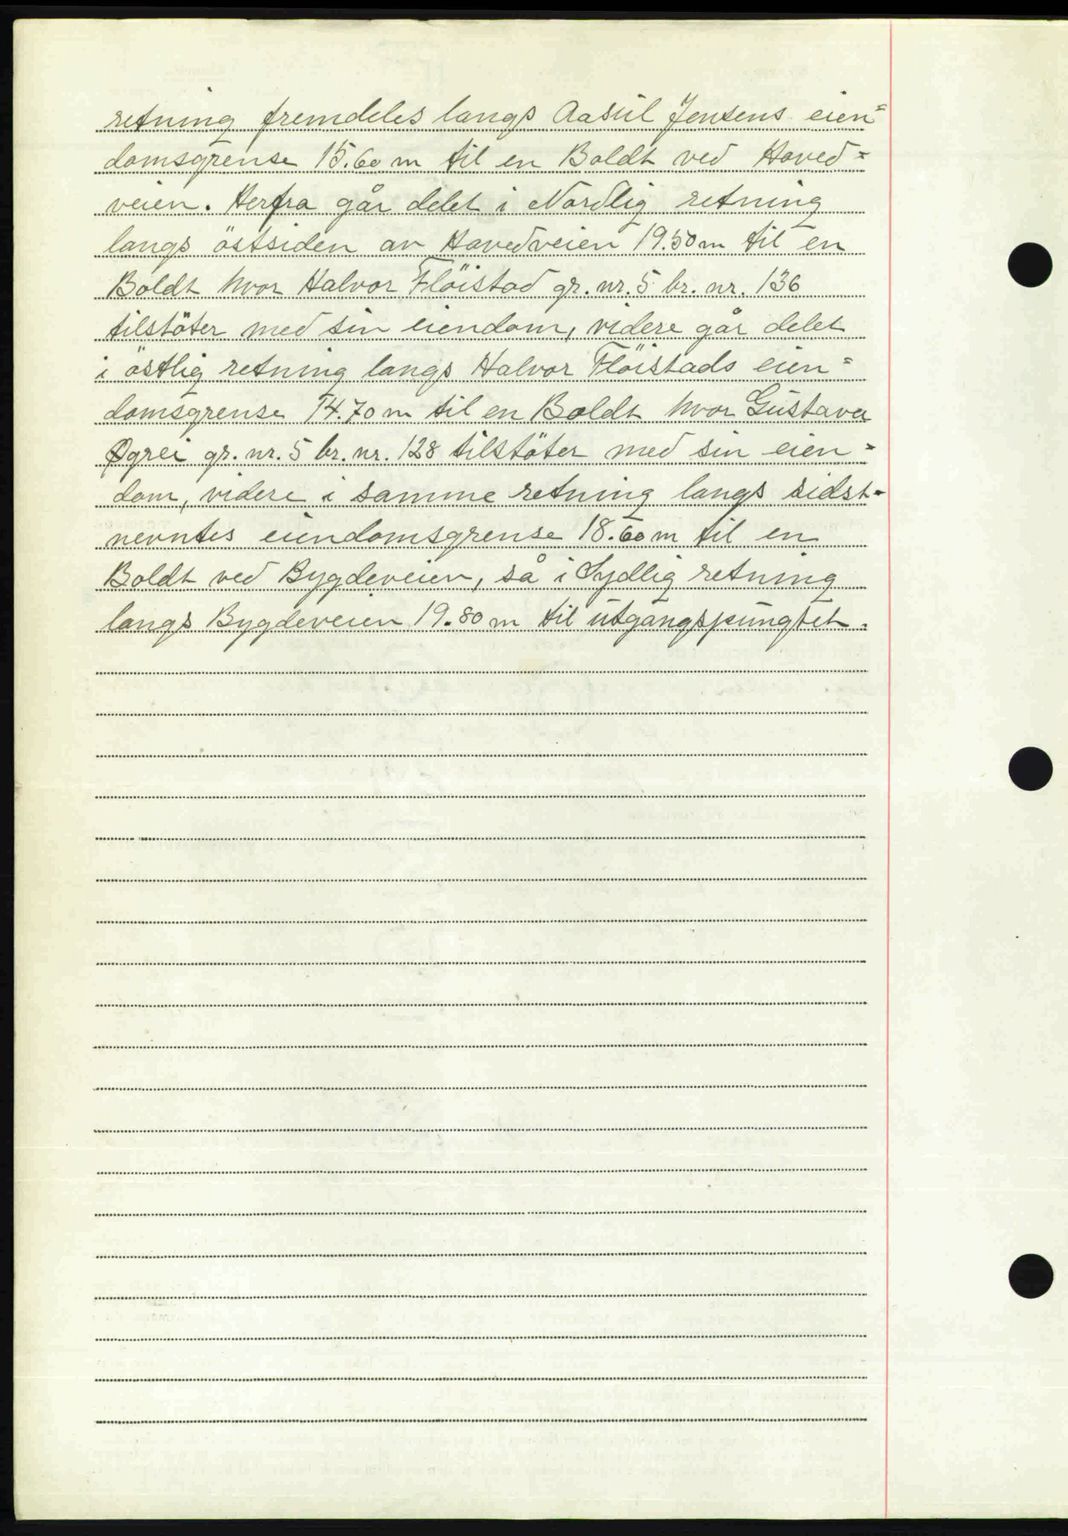 retning fremdeles langs Aasül Jensens eien=
domsgrense 15.60 m til en Boldt ved Hoved=
veien. Herfra går delet i Nordlig retning
langs östsiden av Hovedveien 19.50 m til en
Boldt hvor Halvor Flöistad gr. nr. 5 br. nr. 136
tilstöter med sin eiendom, videre går delet
i östlig retning langs Halvor Flöistads eien=
domsgrense 14.70 m til en Boldt hvor Güstava
Øgrei gr. nr. 5 br. nr. 128 tilstöter med sin eien=
dom, videre i samme retning langs sidst-
nevntes eiendomsgrense 18.60 m til en
Boldt ved Bygdeveien, så i Sydlig retning
langs Bygdeveien 19.80 m til ütgangspüngtet.